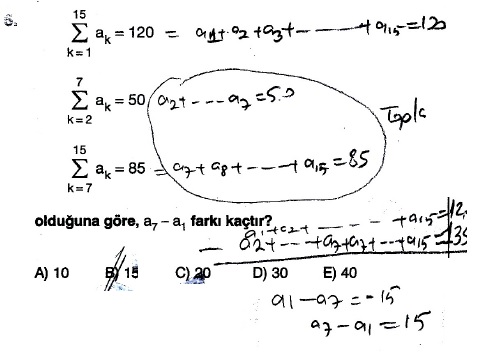 6.
15
∑ aₖ = 120 = a₁+a₂+a₃+ - - - - - +a₁₅=120
k = 1
7
∑ aₖ = 50 a₂+ - - - a₇=50
k = 2
Topla
15
∑ aₖ = 85 = a₇+a₈+ - - - + a₁₅=85
k = 7
olduğuna göre, a₇ – a₁ farkı kaçtır?
a₁+a₂+ - - - - +a₁₅=12
– a₂+ - - - +a₇+a₇+ - - - +a₁₅=135
A) 10 B) 15 C) 20 D) 30 E) 40
a₁–a₇=–15
a₇–a₁=15